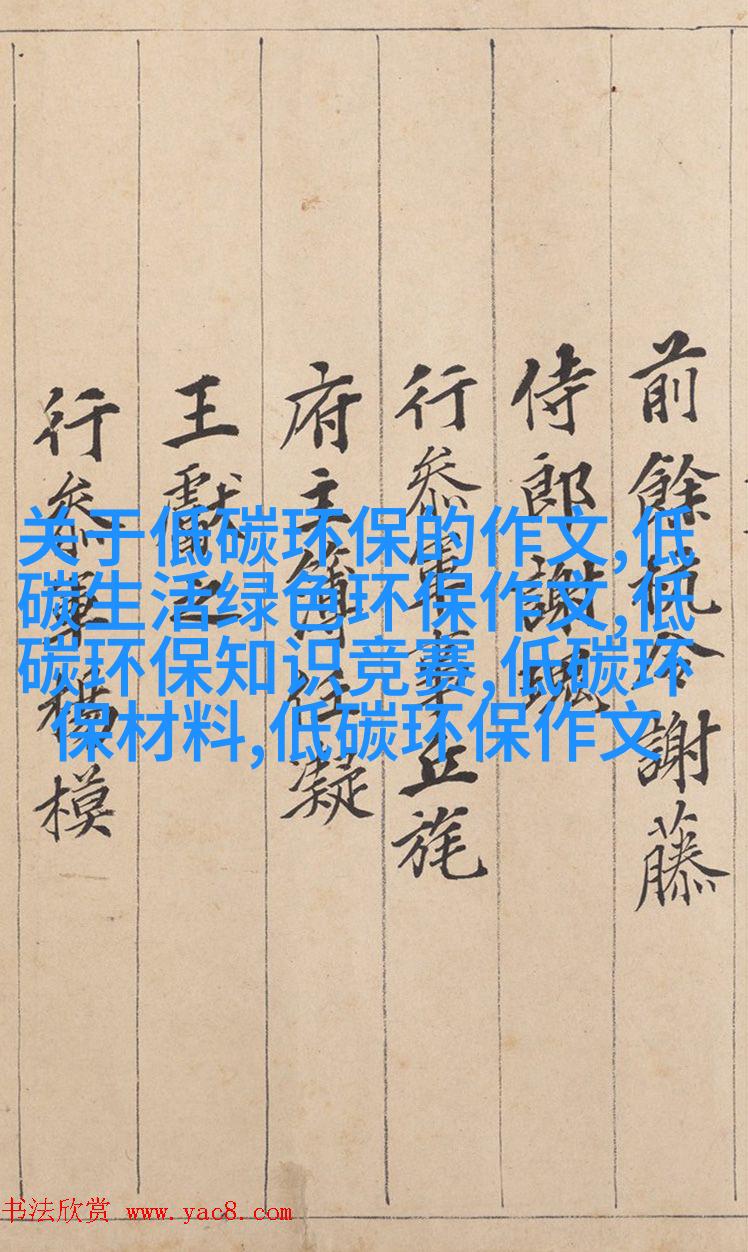 前餘杭令謝藤
侍郎謝瑰
行叅軍事丘旄
府主簿任凝
王獻之
行叅軍楊模
关于低碳环保的作文,低
碳生活绿色环保作文,低
碳环保知识竞赛,低碳环
保材料,低碳环保作文
书法欣赏 www.yac8.com